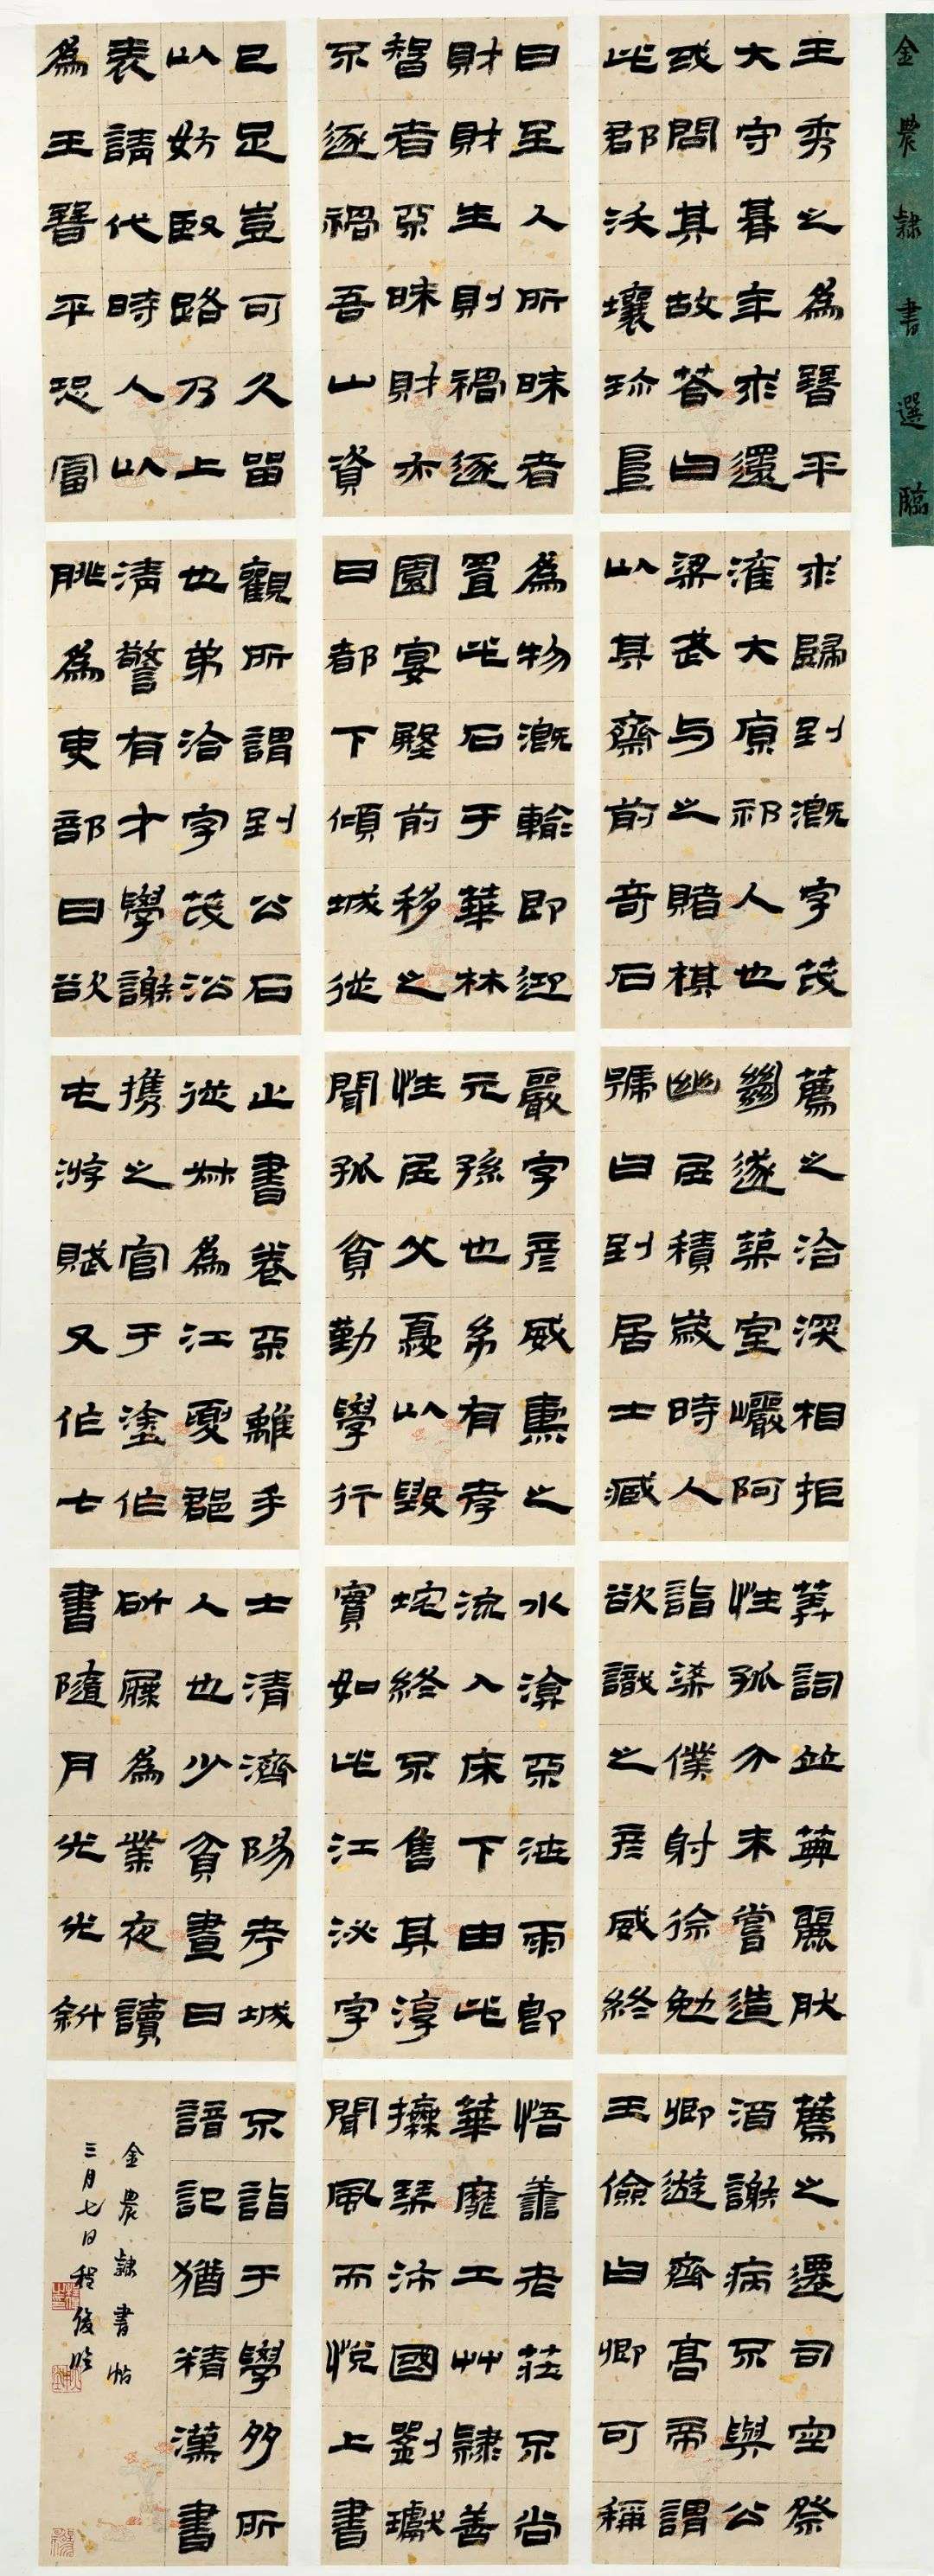 金農隸書選臨
王秀之為晉平
大守朞年求還
或問其故荅曰
此郡沃壤珍阜
曰至人所昧者
財財生則禍逐
智者不昧財亦
不逐禍吾山資
已足豈可久留
以妨賢路乃上
表請代時人以
為王晉平恐富
求歸到溉字茂
灌大原祁人也
梁武与之賭棋
以其齋前奇石
為物溉輸即迎
置此石于華林
園宴殿前移之
曰都下傾城從
觀所謂到公石
也弟洽字茂沿
清警有才學謝
朓為吏部曰欲
薦之洽深相拒
絕遂築室巖阿
幽居積歲時人
號曰到居士臧
嚴字彥威燾之
元孫也幼有孝
性居父憂以毀
聞孤貧勤學行
止書卷不離手
從叔為江夏郡
攜之官于塗作
屯游賦又作七
詞並典麗肰
性孤介未嘗造
詣梁僕射徐勉
欲識之彥威終
水不泄雨即
流入床下由此
宅終不售其淳
實如此江泌字
士清濟陽考城
人也少貧晝日
斫屧為業夜讀
書隨月光光斜
薦之遷司空祭
酒謝病不與公
卿遊齊高帝謂
王儉曰卿可稱
悟善老莊不尚
華靡工艸隸善
操琴沛國劉瓛
聞風而悅上書
不詣于學多所
諳記猶精漢書
金農隸書帖
三月七日程俊臨